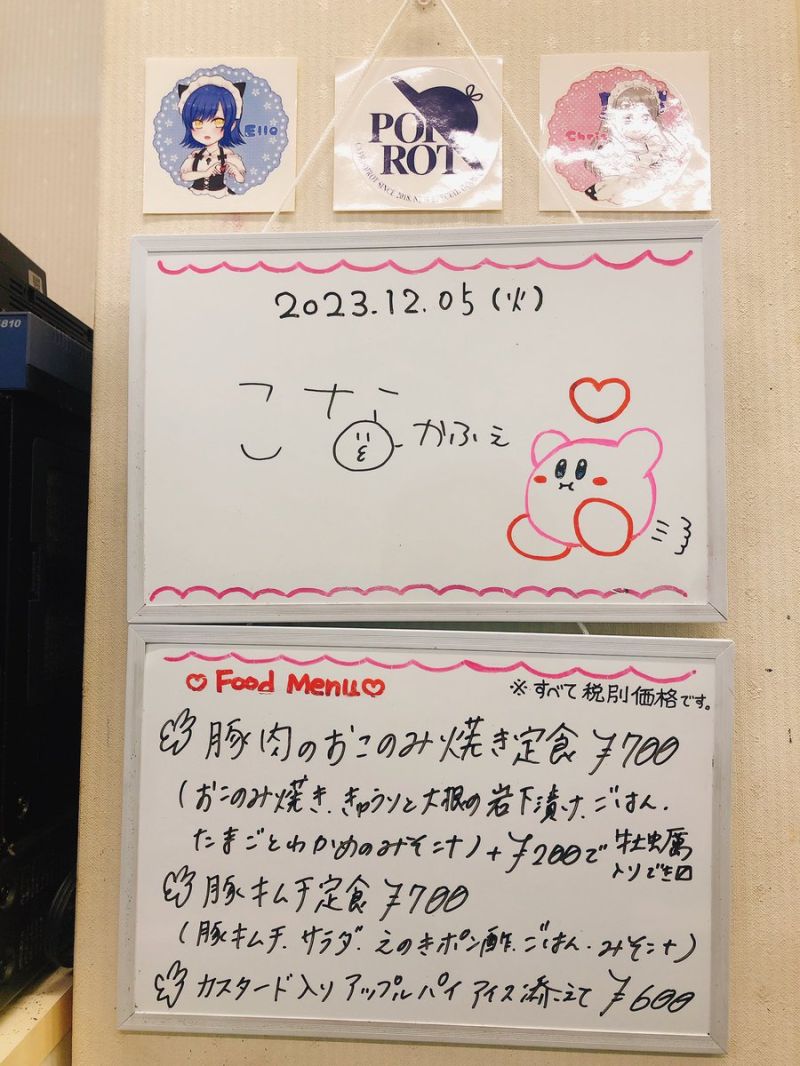 Ello
PON
ROT
Chris
810
2023.12.05(火)
こな
かふぇ
Food Menu
※すべて税別価格です。
豚肉のおこのみ焼き定食 ¥700
(おこのみ焼き、きゅうりと大根の岩下漬け、ごはん、
たまごとわかめのみそ汁)+¥200で牡蠣
入りできロ
豚キムチ定食 ¥700
(豚キムチ、サラダ、えのきポン酢、ごはん、みそ汁)
カスタード入りアップルパイ アイス添えて ¥600